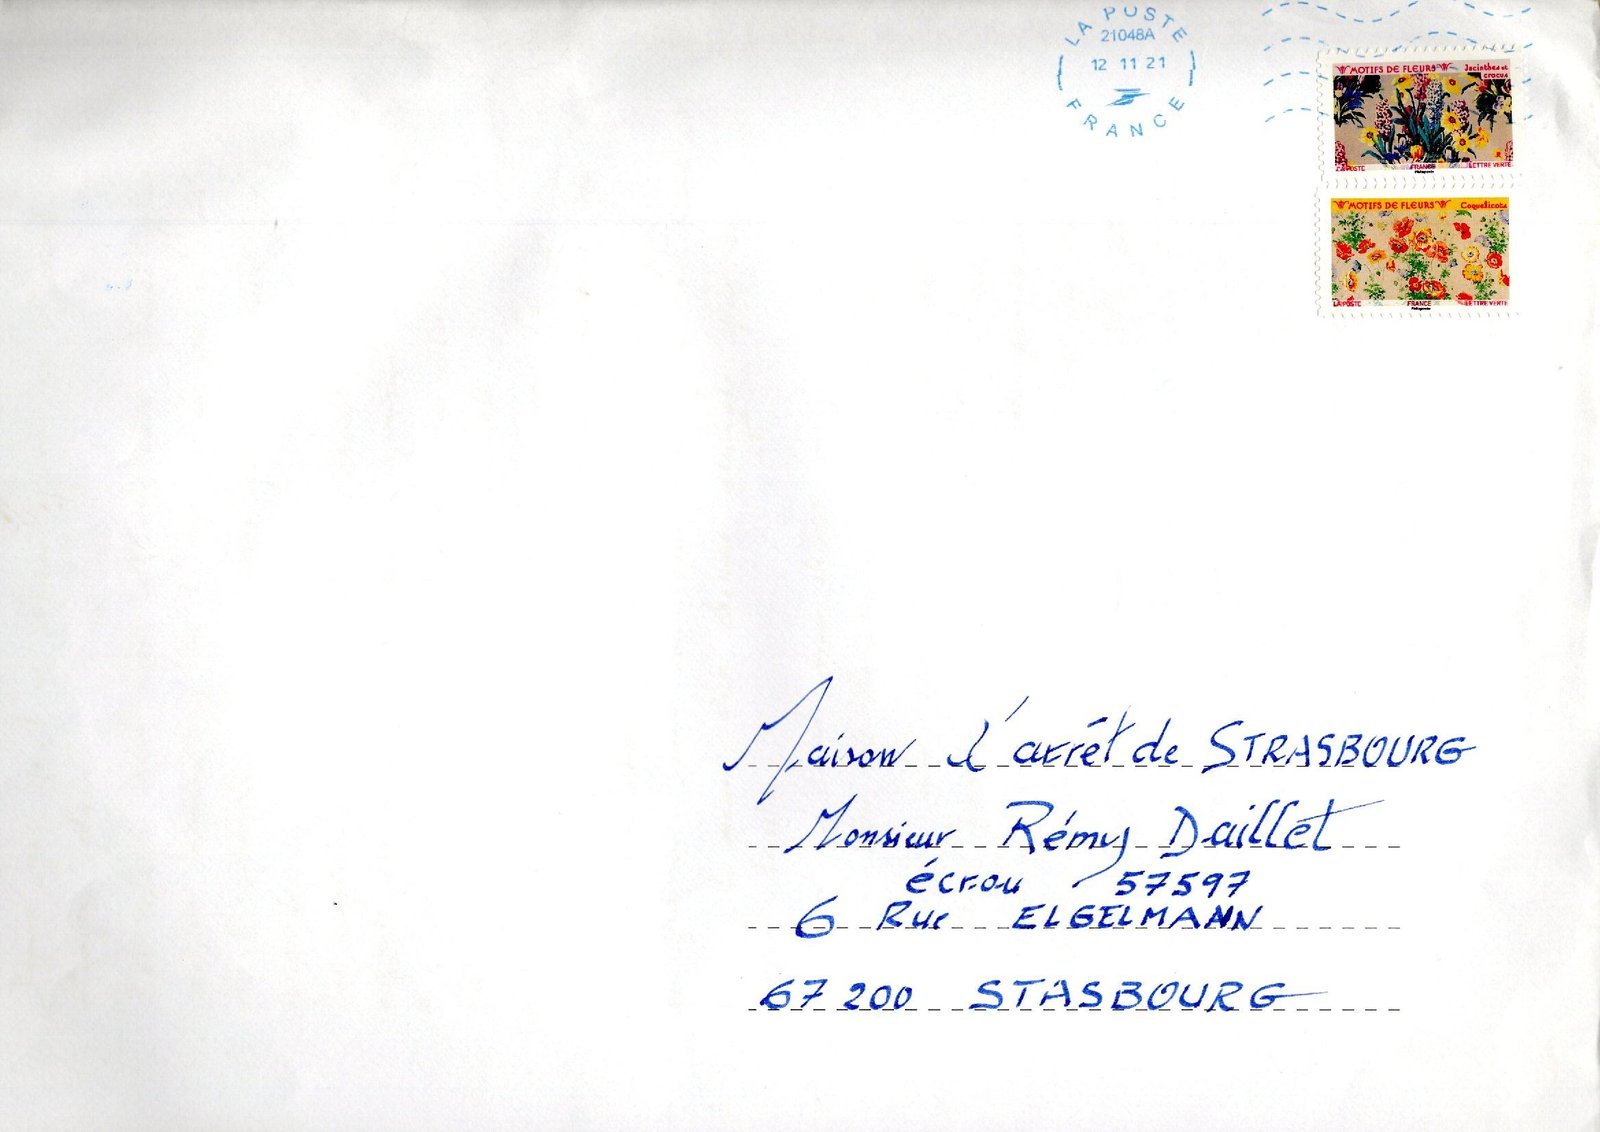 LA POSTE
21048A
12 11 21
FRANCE
MOTIFS DE FLEURS Jacinthes et crocus
LA POSTE FRANCE LETTRE VERTE
Philaposte
MOTIFS DE FLEURS Coquelicots
LA POSTE FRANCE LETTRE VERTE
Philaposte
Maison d'arrêt de STRASBOURG
Monsieur Rémy Daillet
écrou 57597
6 Rue ELGELMANN
67200 STASBOURG